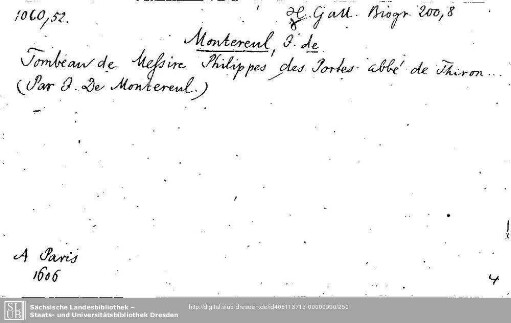 1060,52.
H. Gall. Biogr. 200,8
Montereul, J. de
Tombeau de Messire Philippes des Portes abbé de Thiron...
(Par J. De Montereul.)
A Paris
1606
4
Sächsische Landesbibliothek –
Staats- und Universitätsbibliothek Dresden